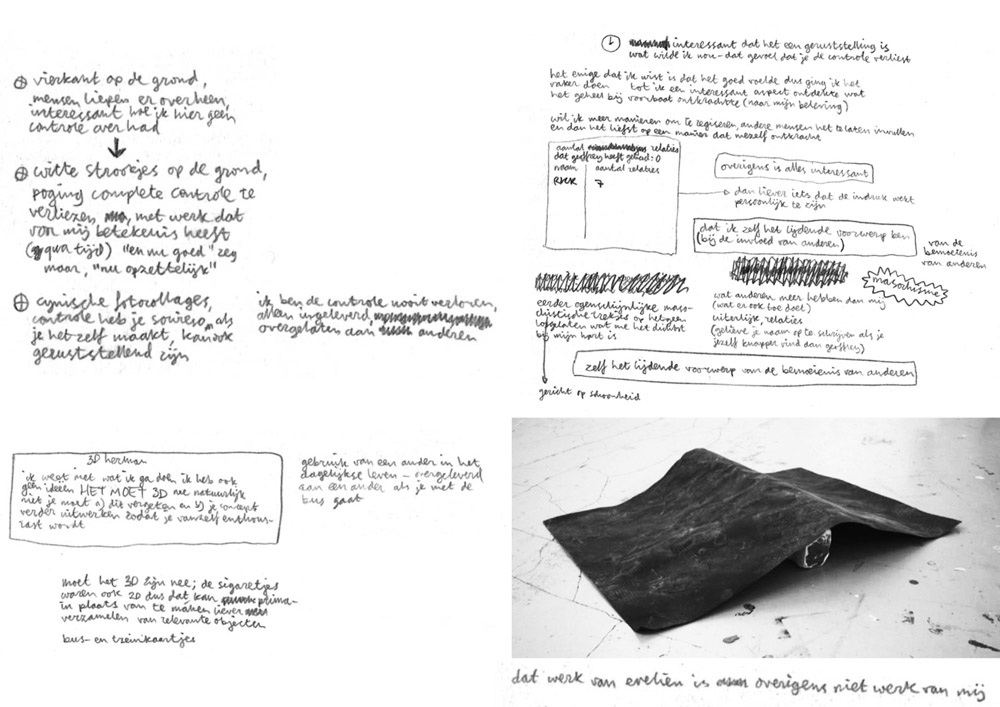 ⊕ vierkant op de grond,
mensen liepen er overheen,
interessant hoe ik hier geen
controle over had
↓
⊕ witte strookjes op de grond,
poging complete controle te
verliezen, met werk dat
voor mij betekenis heeft
(qua tijd) "en nu goed" zeg
maar, "nu opzettelijk"
⊕ cynische fotocollages,
controle heb je sowieso, als
je het zelf maakt, kan ook
geruststellend zijn
ik ben de controle nooit verloren,
alleen ingeleverd
overgelaten aan anderen
3D herman
ik weet niet wat ik ga doen ik heb ook
geen ideeen HET MOET 3D nee natuurlijk
niet je moet a) dit vergeten en b) je concept
verder uitwerken zodat je vanzelf enthous-
iast wordt
gebruik van een ander in het
dagelijkse leven - overgeleverd
aan een ander als je met de
bus gaat
moet het 3D zijn nee; de sigaretjes
waren ook 2D dus dat kan prima-
in plaats van te maken liever
verzamelen van relevante objecten
bus- en treinkaartjes
interessant dat het een geruststelling is
wat wilde ik nou - dat gevoel dat je de controle verliest
het enige dat ik wist is dat het goed voelde dus ging ik het
vaker doen tot ik een interessant aspect ontdekte wat
het geheel bij voorbaat ontkrachtte (naar mijn beleving)
wil ik meer manieren om te regiseren, andere mensen het te laten invullen
en dan het liefst op een manier dat mezelf ontkracht
aantal relaties
dat geoffrey heeft gehad: 0
naam aantal relaties
RICK 7
overigens is alles interessant
dan liever iets dat de indruk wekt
persoonlijk te zijn
dat ik zelf het lijdende voorwerp ben
(bij de invloed van anderen)
van de
bemoeienis
van anderen
masochisme
eerder ogenschijnlijke maso-
chistische trekjes op hetgeen
losgelaten wat me het dichtst
bij mijn hart is
gericht op schoonheid
wat anderen meer hebben dan mij
(wat er ook toe doe)
uiterlijk, relaties
(gelieve je naam op te schrijven als je
jezelf knapper vind dan geoffrey)
zelf het lijdende voorwerp van de bemoeienis van anderen
dat werk van evelien is overigens niet werk van mij